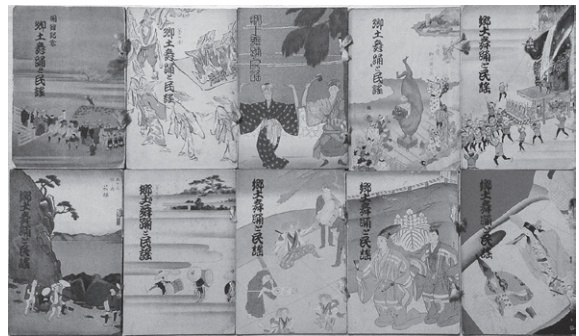 郷土舞踊と民謡
郷土舞踊と民謡
郷土舞踊と民謡
郷土舞踊と民謡
郷土舞踊と民謡
郷土舞踊と民謡
郷土舞踊と民謡
郷土舞踊と民謡
郷土舞踊と民謡